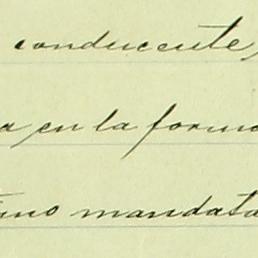 conducente,
a en la forma
tino mandata